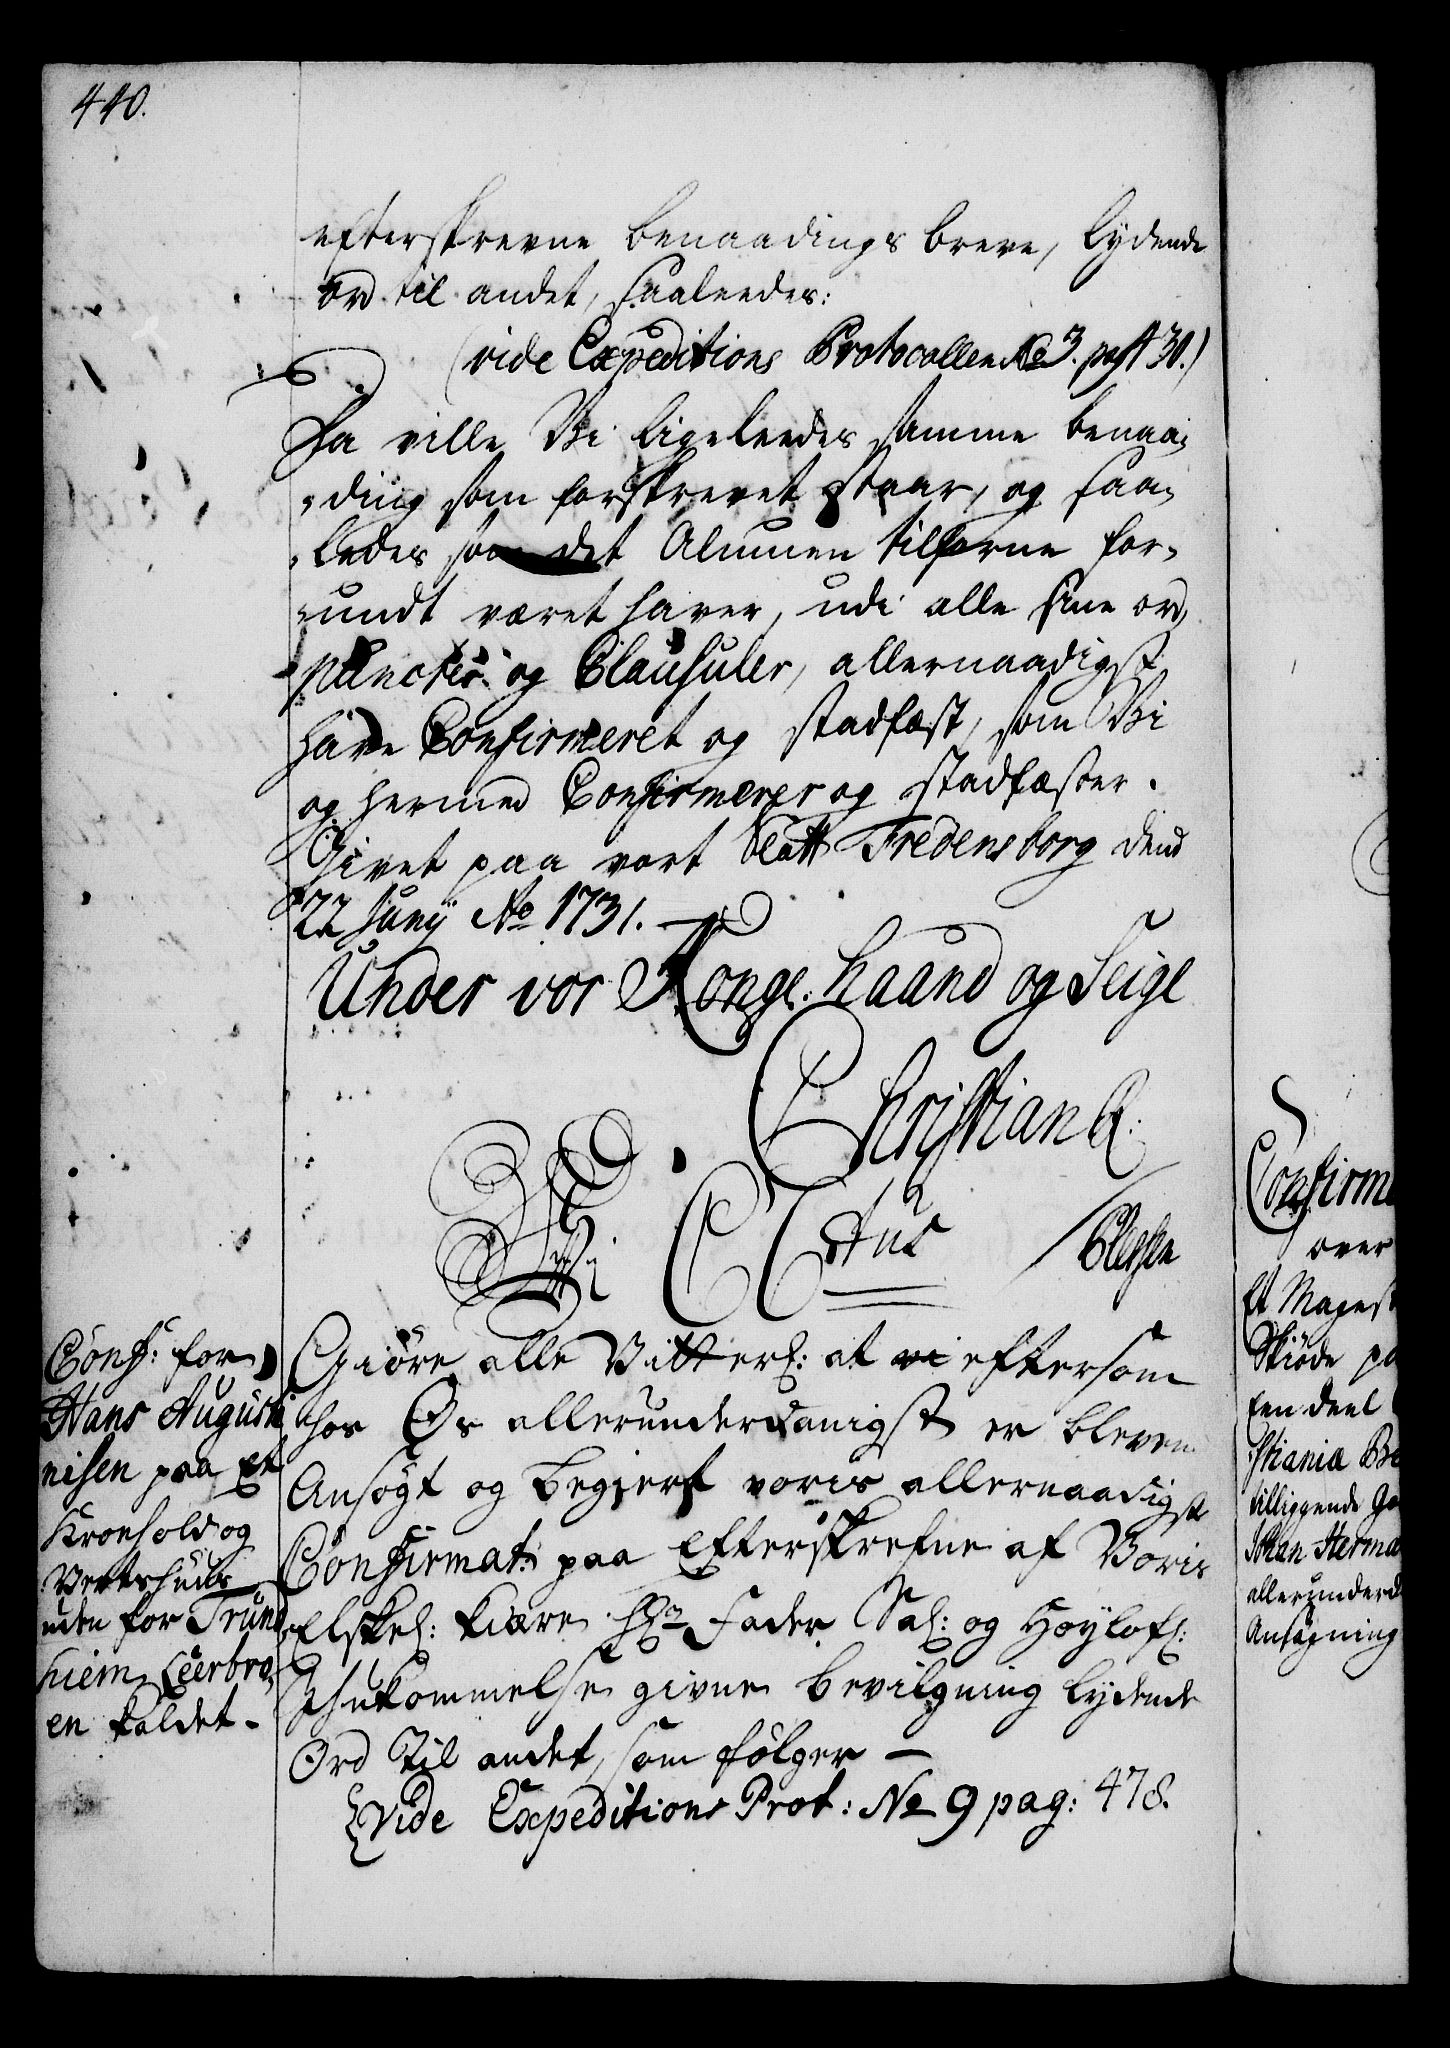 440.
efterskrevne benaadings breve, lydende
ord til andet, saaleedes:
(vide Expeditions Protocollen No 3. pag 30.)
Da ville Vi ligeleedes samme benaa-
-ding som forskrevet staar, og saa-
-ledes som det Alumen tilforne for-
-undt været haver, udi alle sine ord,
puncter og Clausuler, allernaadigst
have Confirmeret og stadfæst, som Vi
og hermed Confirmerer og stadfæster.
Givet paa vort Slott Fredensborg dend
22 Junij Ao 1731.
Under vor Kongl: Haand og Seigl
Christian R:
Vi C 6tus
Plessen
Conf: for
Hans Augusti
nisen paa Et
Kroehold og
Vertshuus
uden for Trund
hiem Leerbro-
en kaldet.
Giøre alle Vitterl: at vi eftersom
hos Os allerunderdanigst er bleven
Ansøgt og begiert voris allernaadigste
Confirmat: paa Efterskrefne af Voris
Elskel: kiære Hr Fader Sal: og Høylofl:
Ihukommelse givne bevilgning lydende
Ord til andet, som følger —
Vide Expeditions Prot: No 9 pag: 478.
Confirme
over
Et Magest
Skiøde pa
Een deel
stiania Be
tilliggende Go
Johan Herma
allerunderd
Ansøgning